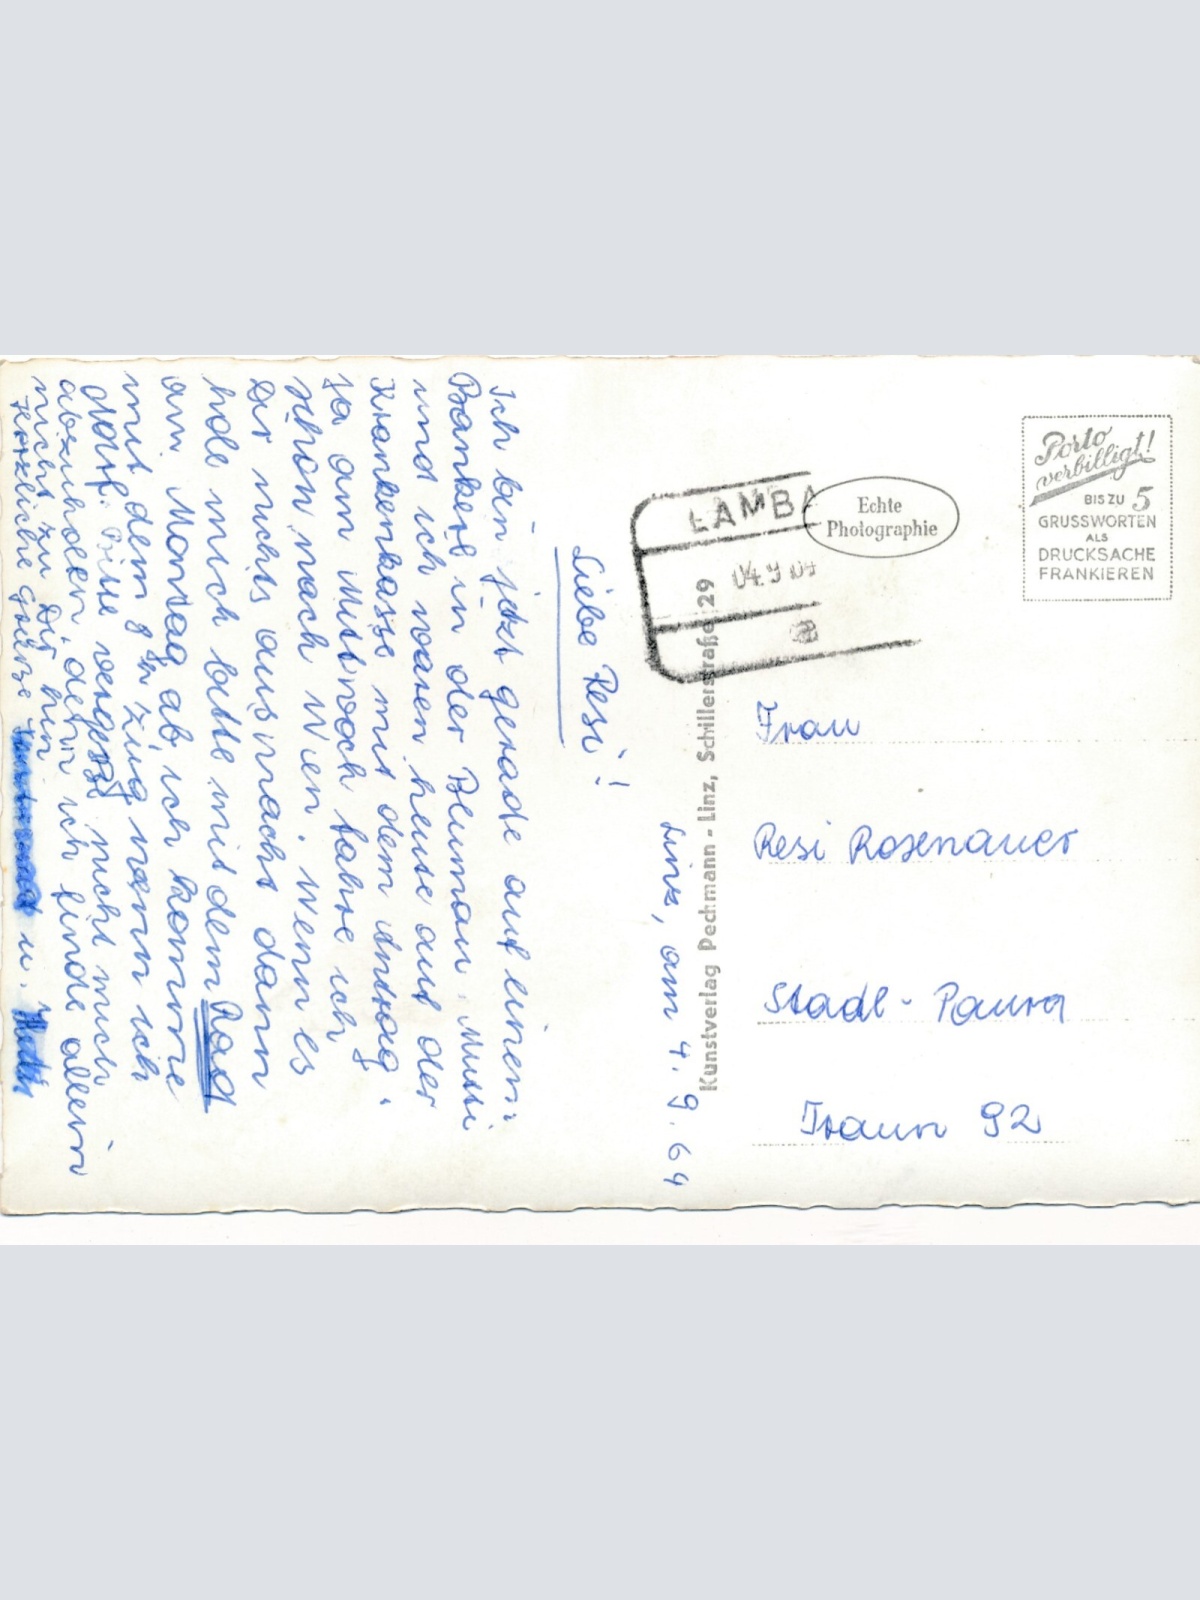 Linz, am 4. 9. 64
Liebe Resi!
Ich bin jetzt gerade auf einem
Bankerl in der Blumau. Mutti
und ich waren heute auf der
Krankenkasse mit dem Antrag.
Ja am Mittwoch fahre ich
schon nach Wien. Wenn es
Dir nichts ausmacht dann
hole mich bitte mit dem Rad
am Montag ab, ich komme
mit dem 8h Zug wenn ich
darf. Bitte vergiß nicht mich
abzuholen denn ich finde allein
nicht zu Dir hin.
Herzliche Grüße u.
LAMBA
04.9 64
a
Echte
Photographie
Porto
verbilligt!
BIS ZU 5
GRUSSWORTEN
ALS
DRUCKSACHE
FRANKIEREN
Kunstverlag Pechmann - Linz, Schillerstraße 29
Frau
Resi Rosenauer
Stadl - Paura
Traun 92